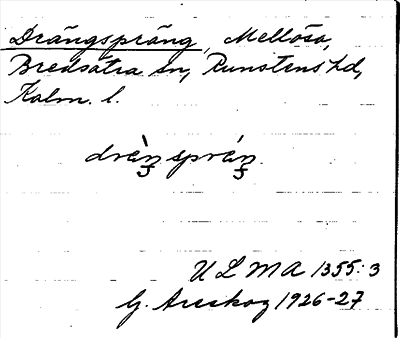 Drängspräng, Mellösa,
Bredsätra sn, Runstens hd,
Kalm. l.
dräŋ̀spräŋ.
ULMA 1355:3
G. Areskog 1926-27